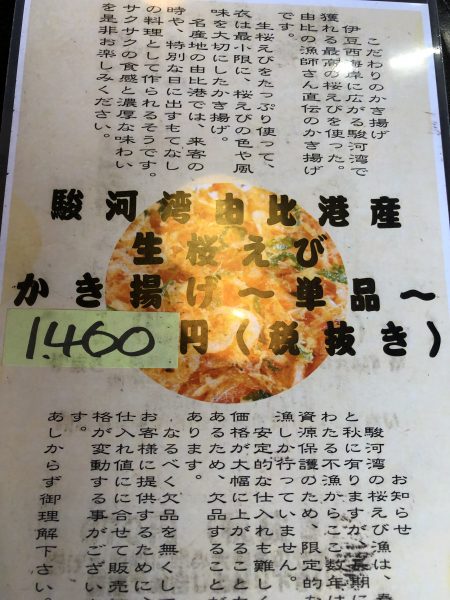 こだわりのかき揚げ
伊豆西海岸に広がる駿河湾で
獲れる最高の桜えびを使った。
由比の漁師さん直伝のかき揚げ
です。
生桜えびをたっぷり使って、
衣は最小限に、桜えびの色や風
味を大切にしたかき揚げ。
名産地の由比港では、来客の
時や、特別な日に出すもてなし
の料理として作られるそうです。
サクサクの食感と濃厚な味わい
を是非お楽しみください。
駿河湾由比港産
生桜えび
かき揚げ～単品～
1,460円(税抜き)
お知らせ
駿河湾の桜えび漁は、春
と秋に有りますが、長期に
わたる不漁からここ数年は
資源保護のため、限定的な
漁しか行っていません。
安定的な仕入れも難しく
価格が大幅に上がることが
あるため、欠品することが
あります。
なるべく欠品を無くし
お客様に提供するために、
仕入れ値にに合せて販売
格が変動する事がござい
す。
あしからず御理解下さい